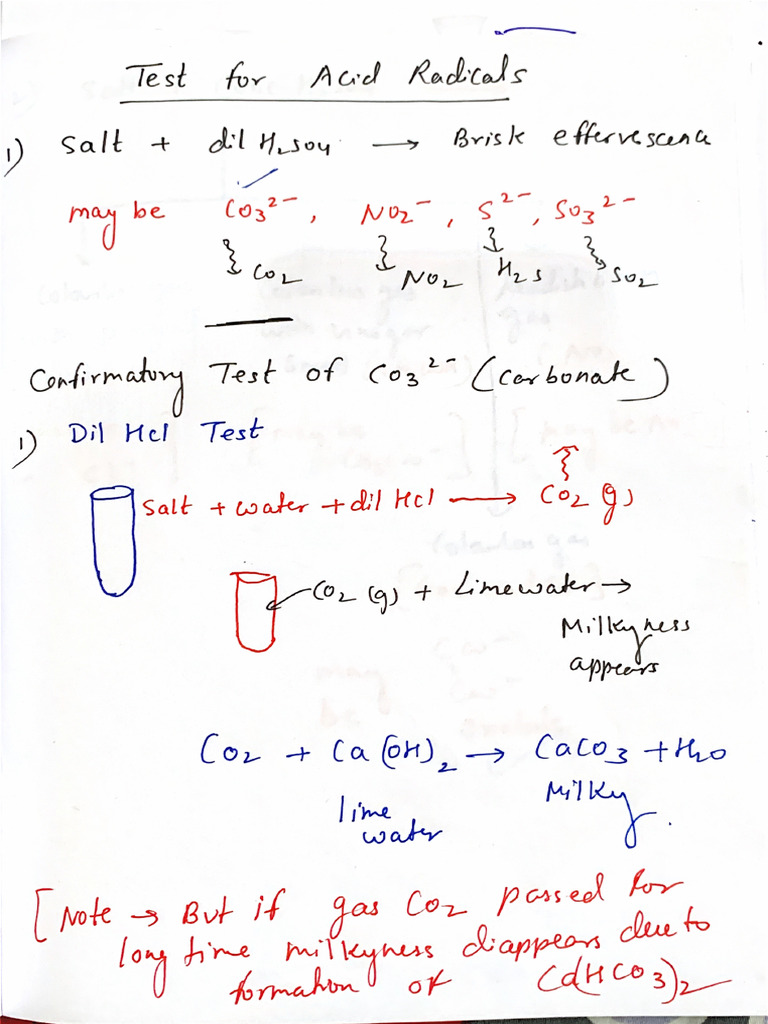 Test for Acid Radicals
1) Salt + dil H2SO4 → Brisk effervescence
may be CO3 2-, NO2-, S2-, SO3 2-
CO2 NO2 H2S SO2
Confirmatory Test of CO3 2- (Carbonate)
1) Dil HCl Test
Salt + water + dil HCl → CO2 (g)
CO2 (g) + Limewater →
Milkyness
appears
CO2 + Ca(OH)2 → CaCO3 + H2O
lime Milky
water
[Note → But if gas CO2 passed for
long time milkyness diappears due to
formation of Ca(HCO3)2